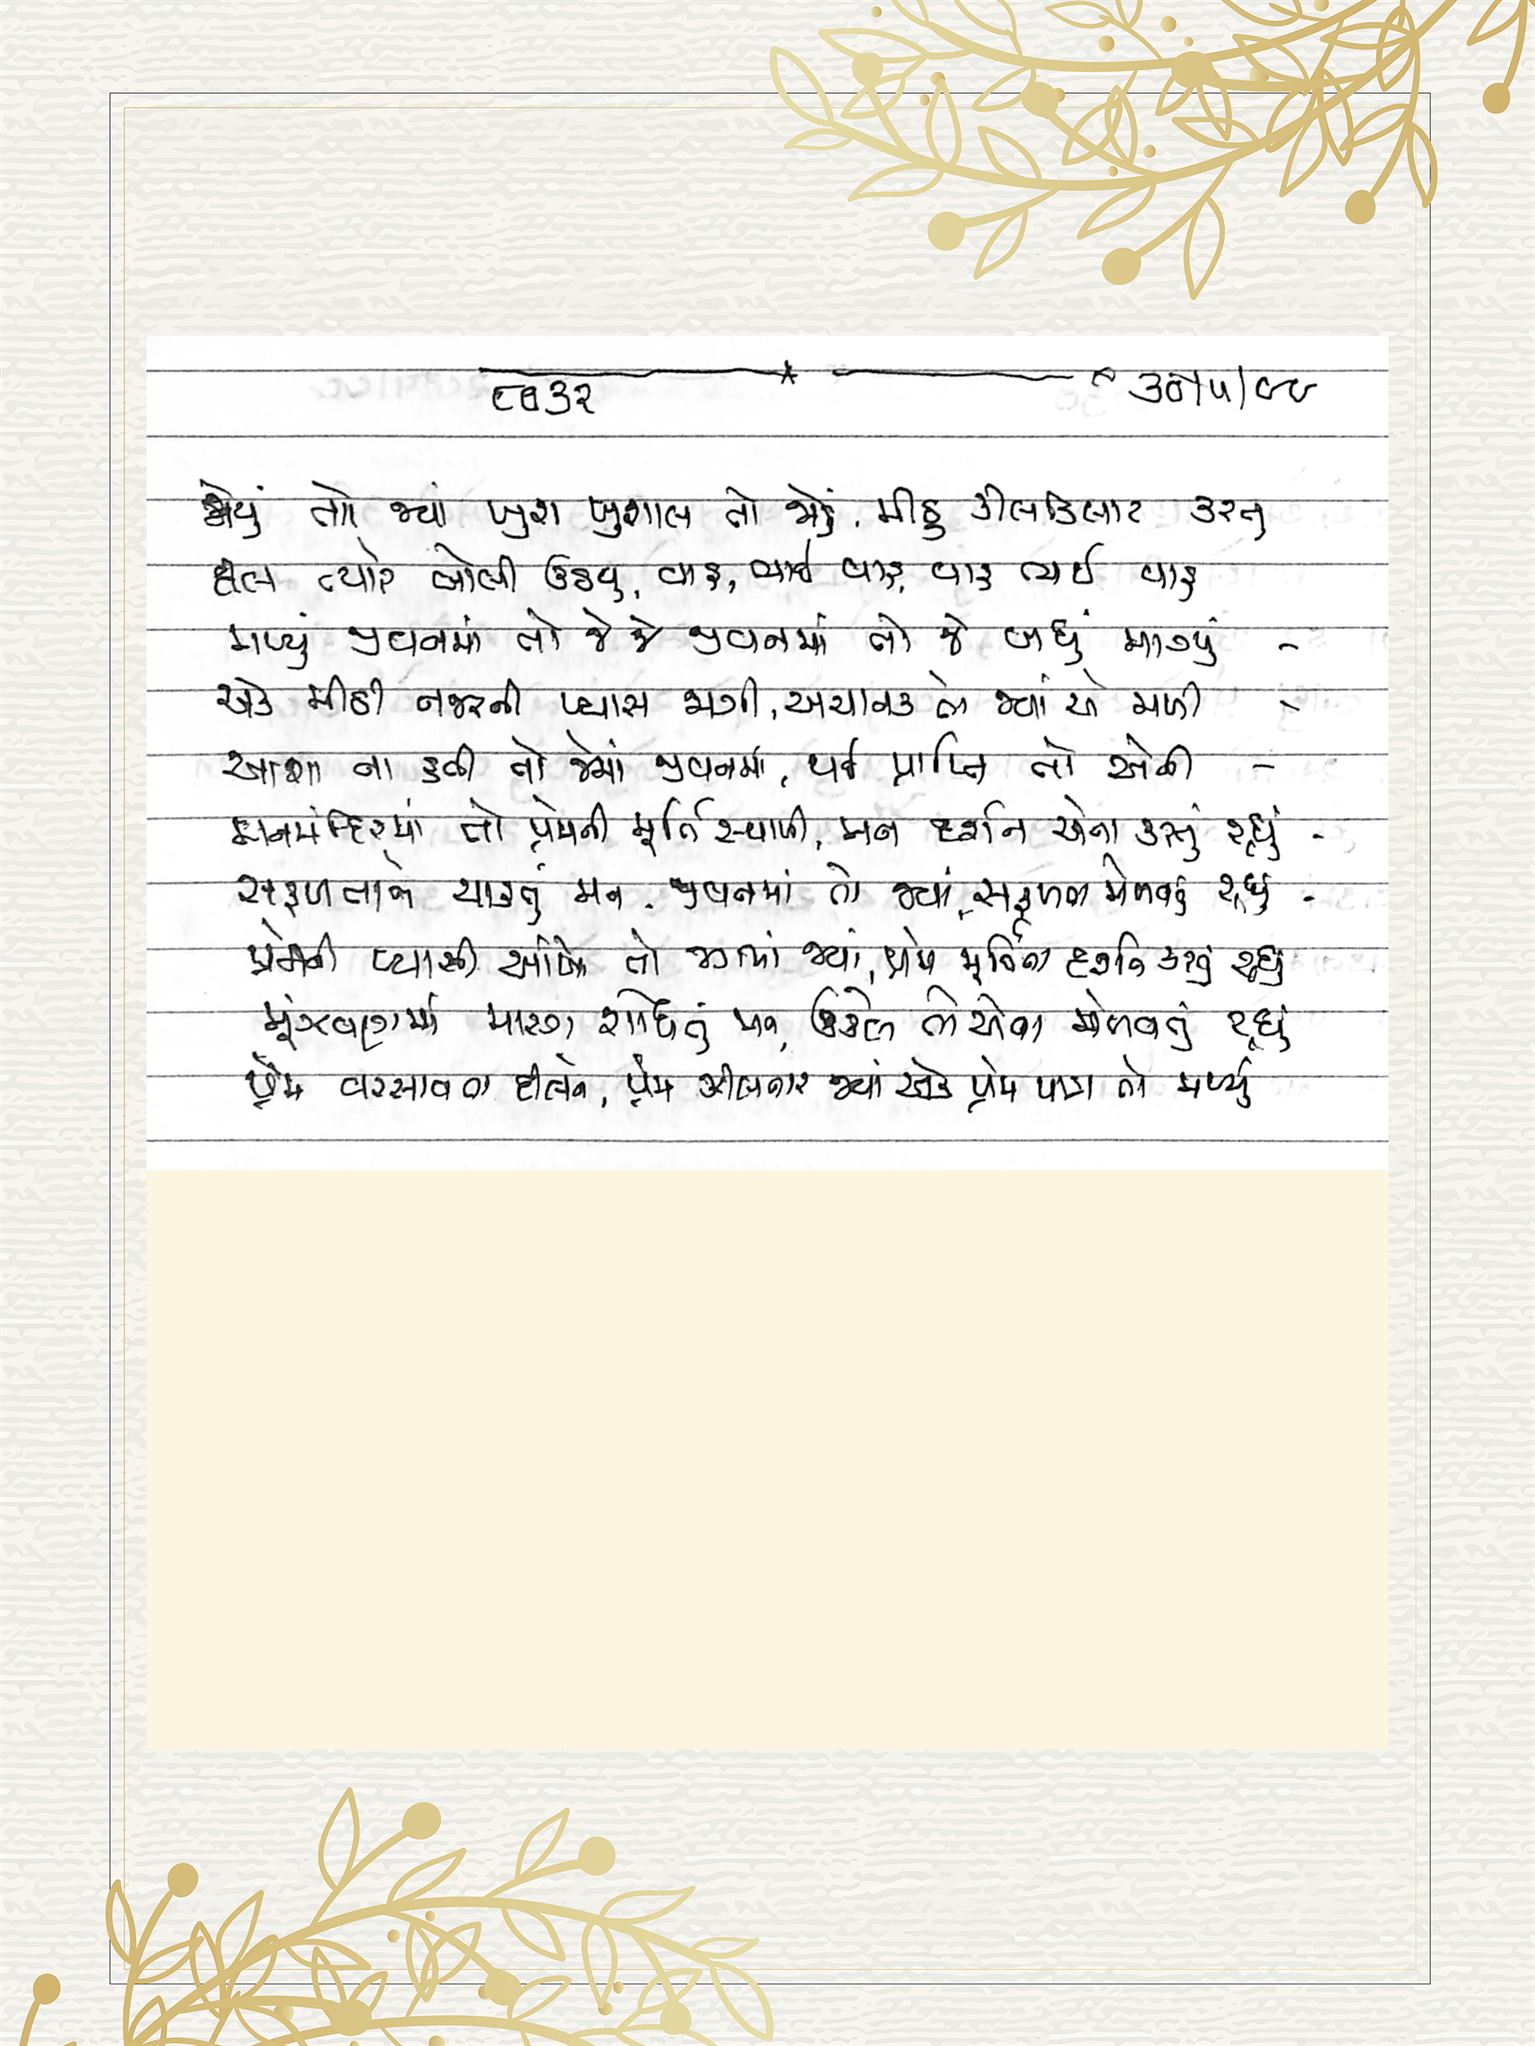 ૮૦૩૨ ૩૦/૫/૯૯
જોયું તો જ્યાં ખુશ ખુશાલ તો જોડું, મીઠું કીલકિલાટ કરતુ
દીલ ત્યારે બોલી ઉઠયુ, વાહ, ભાઈ વાહ, વાહ ભાઈ વાહ
મળ્યું જીવનમાં તો જે જે જીવનમાં તો જે બધું માગ્યું -
એક મીઠી નજરની પ્યાસ જાગી, અચાનક તો જ્યાં એ મળી -
આશા ના હતી તો જેમાં જીવનમાં, થઈ પ્રાપ્તિ તો એની -
મનમંદિરમાં તો પ્રેમની મૂર્તિ સ્થાપી, મન દર્શન એના કરતું રહ્યું -
સફળતાને ચાહતું મન, જીવનમાં તો જ્યાં, સફળતા મેળવતું રહ્યું -
પ્રેમની પ્યાસી આંખો તો જ્યાં, પ્રેમ મૂર્તિના દર્શન કરતું રહ્યું
મૂંઝવણમાં મારગ શોધતું મન, ઉકેલ તો એના મેળવતું રહ્યું
પ્રેમ વરસાવતા દીલને, પ્રેમ ઝીલનાર જ્યાં એક પ્રેમ પાત્ર તો મળ્યું